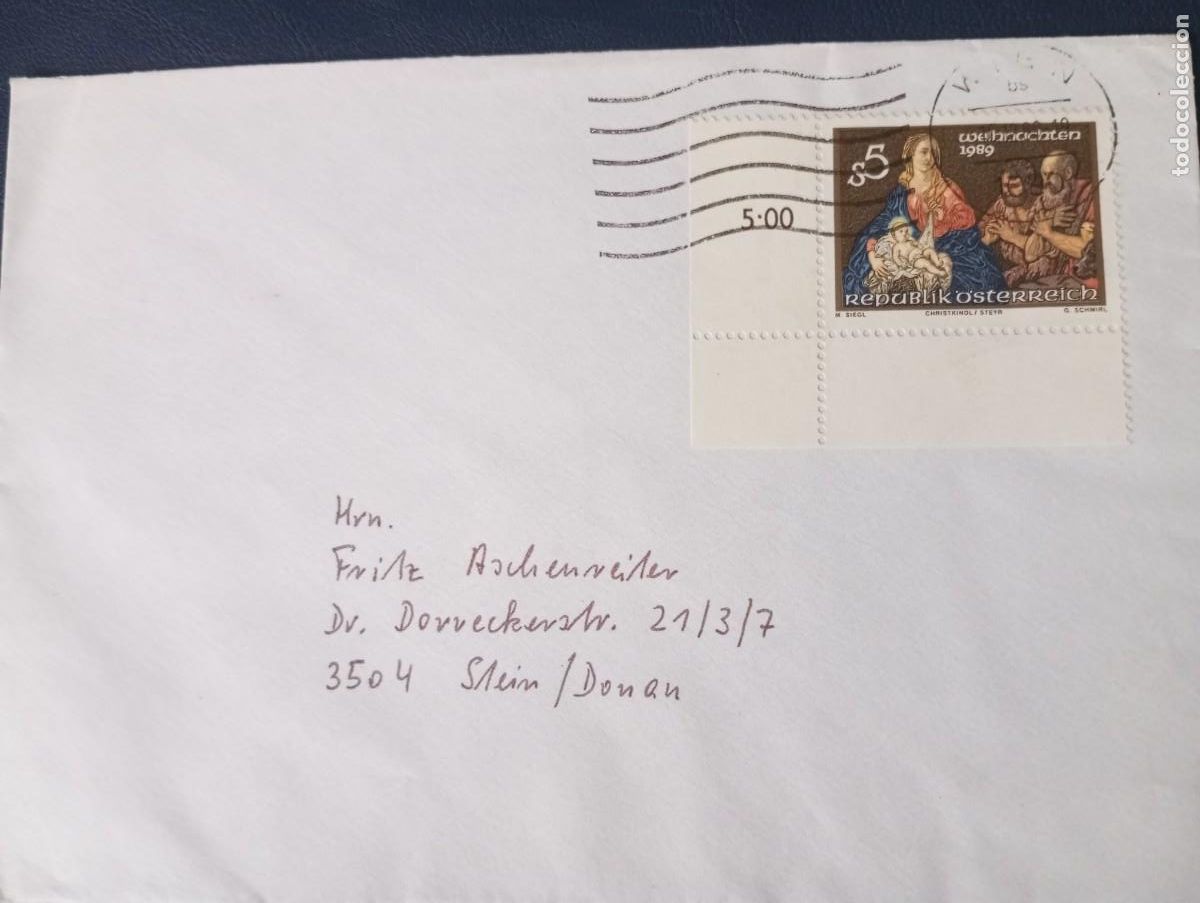 weihnachten
1989
s5
5·00
REPUBLIK ÖSTERREICH
M. SIEGL CHRISTKINDL / STEYR G. SCHMIRL
Hrn.
Fritz Aschenreiter
Dr. Dorreckerstr. 21/3/7
3504 Stein/Donau
todocoleccion